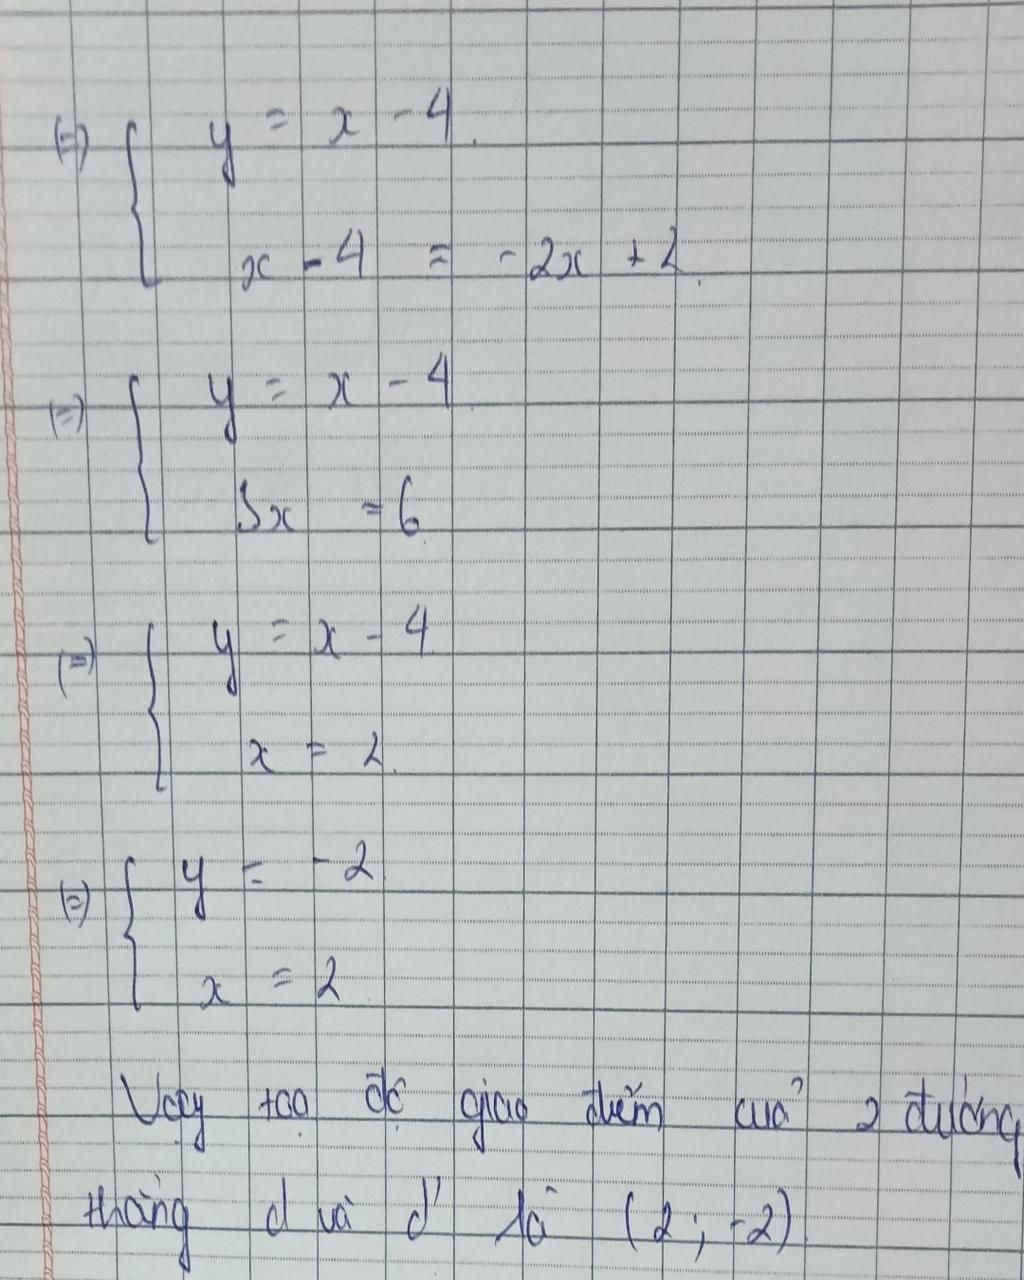 (=) { y = x - 4
x - 4 = -2x + 2
(=) { y = x - 4
3x = 6
(=) { y = x - 4
x = 2
(=) { y = -2
x = 2
Vậy tọa độ giao điểm của 2 đường
thẳng d và d' là (2 ; -2)